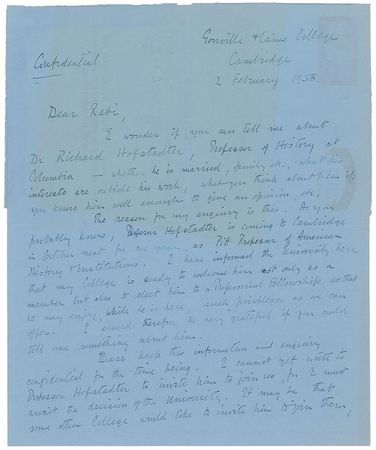 Gonville & Caius College
Cambridge
Confidential
2 February 1958.
Dear Rabi,
I wonder if you can tell me about
Dr Richard Hofstadter, Professor of History at
Columbia — whether he is married, family etc., what his
interests are outside his work, what you think about him if
you know him well enough to give an opinion, etc.
The reason for my enquiry is this. As you
probably know, Professor Hofstadter is coming to Cambridge
in October next for one year, as Pitt Professor of American
History & Institutions. I have informed the University here
that my College is ready to welcome him not only as a
member but also to elect him to a Professorial Fellowship, so that
he may enjoy, while he is here, such privileges as we can
offer. I should therefore be very grateful if you could
tell me something about him.
Please keep this information and enquiry
confidential for the time being. I cannot yet write to
Professor Hofstadter to invite him to join us, for I must
await the decision of the University. It may be that
some other College would like to invite him to join them,